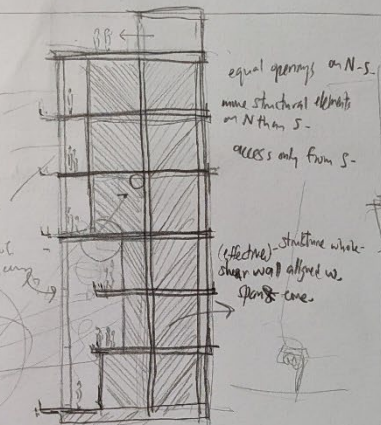 equal openings on N-S-
more structural elements
on N than S-
access only from S-
(effective)-structure whole-
shear wall aligned w.
span core.